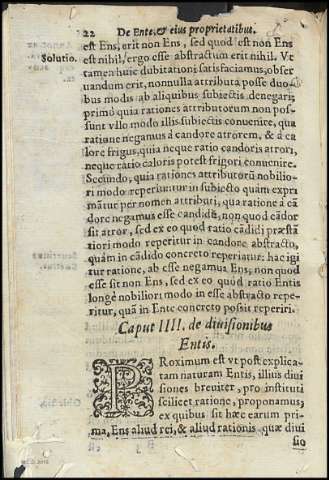 22 De Ente, & eius proprietatibus.
est Ens, erit non Ens, sed quod est non Ens
Solutio. est nihil, ergo esse abstractum erit nihil. Vt
tamen huic dubitationi satisfaciamus, obser
uandum erit, nonnulla attributa posse duo
bus modis ab aliquibus subiectis denegari;
primò quia rationes attributorum non pos-
sunt vllo modo illis subiectis conuenire, qua
ratione negamus à candore atrorem, & à ca
lore frigus, quia neque ratio candoris atrori,
neque ratio caloris potest frigori conuenire.
Secundo, quia rationes attributorũ nobilio-
ri modo reperiuntur in subiecto quàm expri
mãtur per nomen attributi, qua ratione à cã
dore negamus esse candidũ, non quod cãdor
sit ater, sed ex eo quod ratio cãdidi præstã
tiori modo reperitur in candore abstracto,
quàm in cãdido concreto reperiatur: hac igi
tur ratione, ab esse negamus Ens, non quod
esse sit non Ens, sed ex eo quod ratio Entis
longè nobiliori modo in esse abstracto repe-
ritur, quã in Ente concreto possit reperiri.
Caput IIII. de diuisionibus
Entis.
PRoximum est vt post explica
tam naturam Entis, illius diui
siones breuiter, pro instituti
scilicet ratione, proponamus,
ex quibus sit hæc earum pri-
ma, Ens aliud rei, & aliud rationis quæ diui
sio